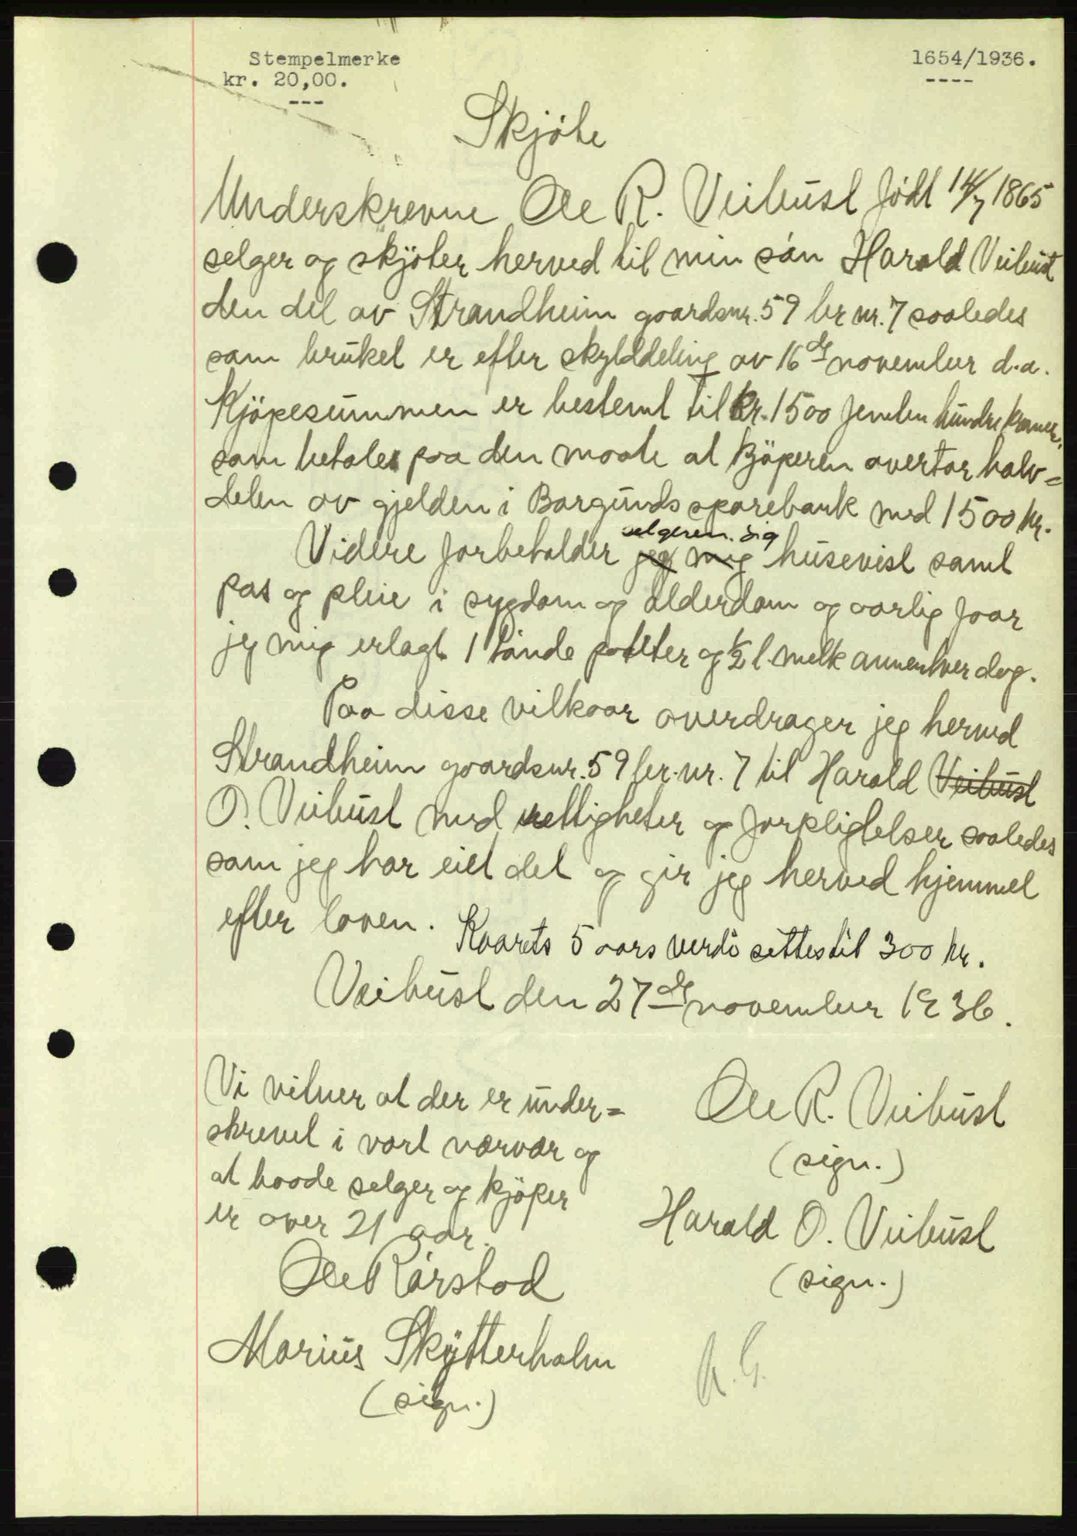 Stempelmerke
kr. 20,00.
1654/1936.
Skjöte
Underskrevne Ole R. Veibust född 14/7 1865
selger og skjöter herved til min sön Harald Veibust
den del av Strandheim gaardsnr. 59 br nr. 7 saaledes
som bruket er efter skylddeling av 16de november d.a.
Kjöpesummen er bestemt til kr. 1500 femten hundre kroner,
som betales paa den maate at kjöperen overtar halv=
delen av gjelden i Borgunds sparebank med 1500 kr.
selgeren sig
Videre forbeholder jeg mig husevist samt
pas og pleie i sygdom og alderdom og aarlig faar
jeg mig erlagt 1 tönde poteter og 1/2 l melk annenhver dag.
Paa disse vilkaar overdrager jeg herved
Strandheim gaardsnr. 59 br. nr. 7 til Harald Veibust
O. Veibust med rettigheter og forpligtelser saaledes
som jeg har eiet det og gir jeg herved hjemmel
efter loven. Kaarets 5 aars verdi settes til 300 kr.
Veibust den 27de november 1936.
Vi vitner at der er under=
skrevet i vort nærvær og
at baade selger og kjöper
er over 21 aar.
Ole Rörstad
Marius Skytterholm
(sign.)
Ole R. Veibust
(sign.)
Harald O. Veibust
(sign.)